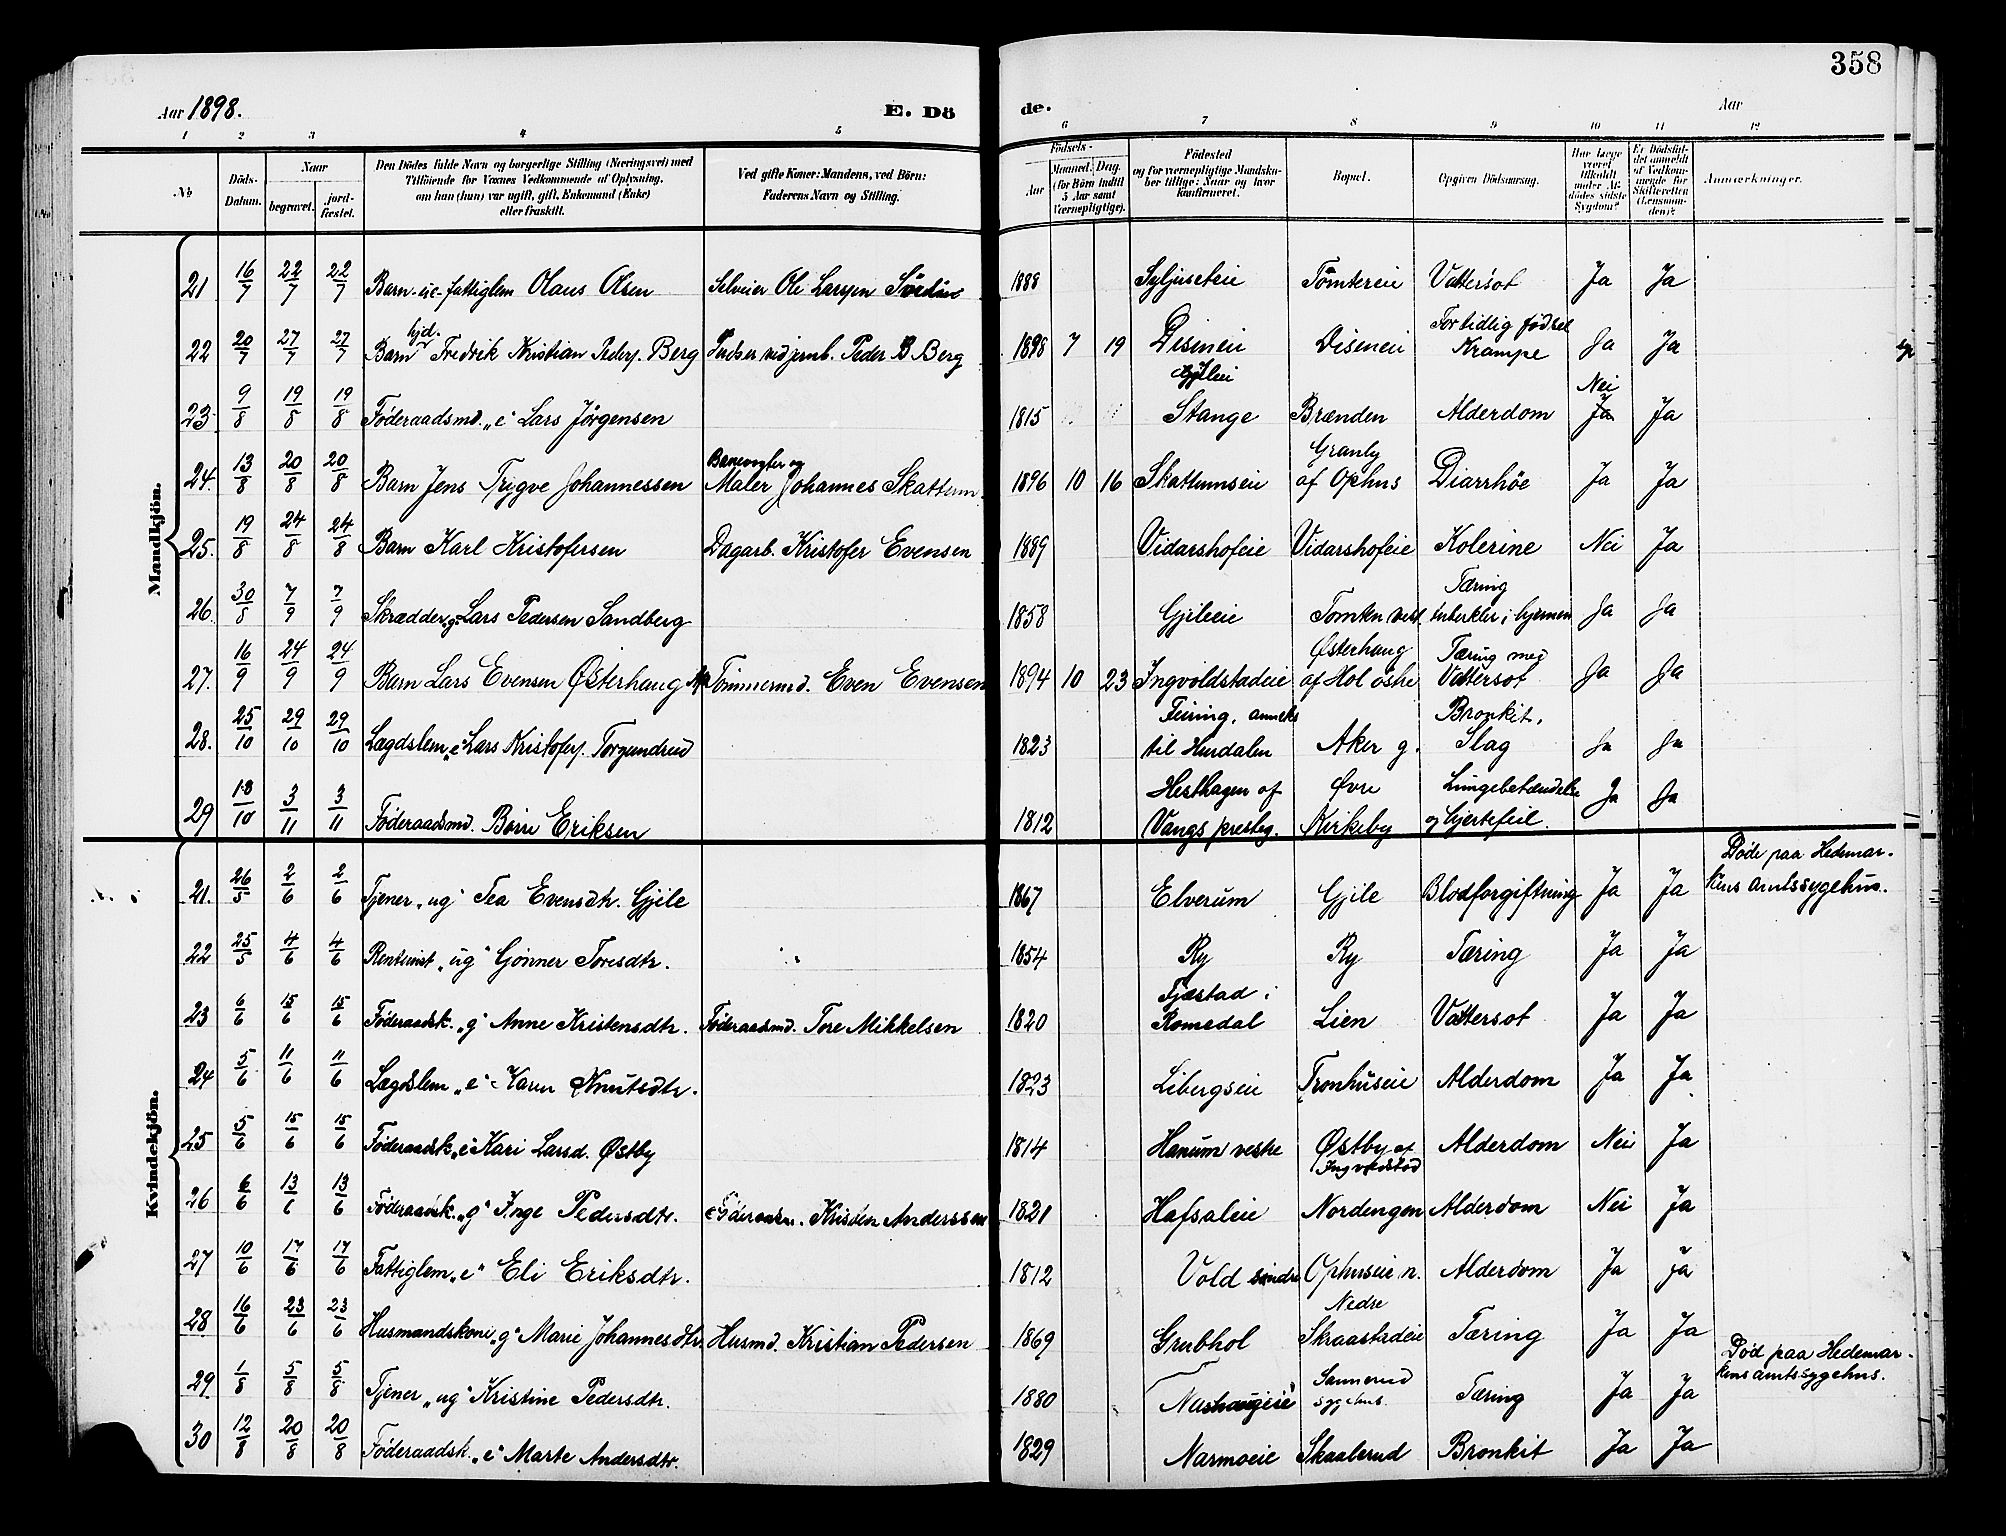 358
Aar 1898. E. Dö de. Aar
1 2 3 4 5 6 7 8 9 10 11 12
№
Döds-Datum.
Naar
begravet.
jord-fæstet.
Den Dödes fulde Navn og borgerlige Stilling (Næringsvei) med
Tilföiende for Voxnes Vedkommende af Oplysning,
om han (hun) var ugift, gift, Enkemand (Enke)
eller fraskilt.
Ved gifte Koner: Mandens, ved Börn:
Faderens Navn og Stilling.
Födsels-
Aar
Maaned. Dag.
(for Börn indtil
5 Aar samt
Værnepligtige).
Födested
og for værnepligtige Mandska-
ber tillige: Naar og hvor
konfirmeret.
Bopæl.
Opgiven Dödsaarsag.
Har Læge
været
tilkaldt
under Af-
dödes sidste
Sygdom?
Er Dödsfal-
det anmeldt
af Vedkom-
mende for
Skifteretten
(Lensman-
den)?
Anmærkninger.
Mandkjön.
21 16/7 22/7 22/7 Barn fattiglem Olaus Olsen Selveier Ole Larsen 1888 Syljuseteie Tömtereie Vattersot Ja Ja
22 20/7 27/7 27/7 Barn hjd. Fredrik Kristian Peders. Berg Pudser ved jernb. Peder B Berg 1898 7 19 Diseneie Diseneie For tidlig födsel Krampe Ja Ja
23. 9/8 19/8 19/8 Føderaadsmd. „e“ Lars Jørgensen 1815 Stange Brænden Alderdom Nei Ja Ja
24. 13/8 20/8 20/8 Barn Jens Trygve Johannessen Banevogter og Maler Johannes Skattum 1896 10 16 Skattumseie Granly af Ophus Diarrhöe Ja Ja
25. 19/8 24/8 24/8 Barn Karl Kristofersen Dagarb. Kristofer Evensen 1889 Vidarshofeie Vidarshofeie Kolerine Nei Ja
26. 30/8 7/9 7/9 Skrædder „g“ Lars Pedersen Sandberg 1858 Gjileeie Tomten vest Tæring tuberkler i hjernen Ja Ja
27. 16/9 24/9 24/9 Barn Lars Evensen Østerhaug Tömmermd. Even Evensen 1894 10 23 Ingvoldstadeie Østerhaug af Hol östre Tæring med Vattersot Ja Ja
28. 25/10 29/10 29/10 Lægdslem „e“ Lars Kristofers. Torgundrud 1823 Feiring, anneks til Hurdalen Aker g. Bronkit, Slag Ja Ja
29 18/10 3/11 3/11 Føderaadsmd. Börre Eriksen 1812 Hesthagen af Vangs prestg. Øvre Kirkeby Lungebetændelse og hjertefeil. Ja Ja
Kvindekjön.
21. 26/5 2/6 2/6 Tjener „ug“ Tea Evensdtr. Gjile 1867 Elverum Gjile Blodforgiftning Ja Ja Døde paa Hedemar-
kens amtssygehus.
22 25/5 4/6 4/6 Rentenist „ug“ Gönner Toresdtr. 1854 Ry Ry Tæring Ja Ja
23 6/6 15/6 15/6 Føderaadsk. „g“ Anne Kristensdtr. Føderaadsmd. Tore Mikkelsen 1820 Fjæstad i Romedal Lien Vattersot Ja Ja
24 5/6 11/6 11/6 Lægdslem „e“ Karen Knutsdtr. 1823 Libergseie Tronhuseie Alderdom Ja Ja
25 5/6 15/6 15/6 Føderaadsk. „e“ Kari Larsd. Østby 1814 Hanum vestre Østby af Ingvoldstad Alderdom Nei Ja
26 6/6 13/6 13/6 Føderaadsk. „g“ Inge Pedersdtr. Føderaadsm. Kristen Anderssen 1821 Hafsaleie Nordengen Alderdom Nei Ja
27 10/6 17/6 17/6 Fattiglem „e“ Eli Eriksdtr. 1812 Vold söndre Ophuseie n. Alderdom Ja Ja
28 16/6 23/6 23/6 Husmandskone „g“ Marie Johannesdtr. Husmd. Kristian Pedersen 1869 Grubhol Nedre Skraastadeie Tæring Ja Ja
29. 1/8 5/8 5/8 Tjener „ug“ Kristine Pedersdtr. 1880 Nushaugeie Sannerud sygehus. Tæring Ja Ja Død paa Hedemar-
kens amtssygehus.
30 12/8 20/8 20/8 Føderaadsk. „e“ Marte Andersdtr. 1829 Narmoeie Skaalerud Bronkit Ja Ja